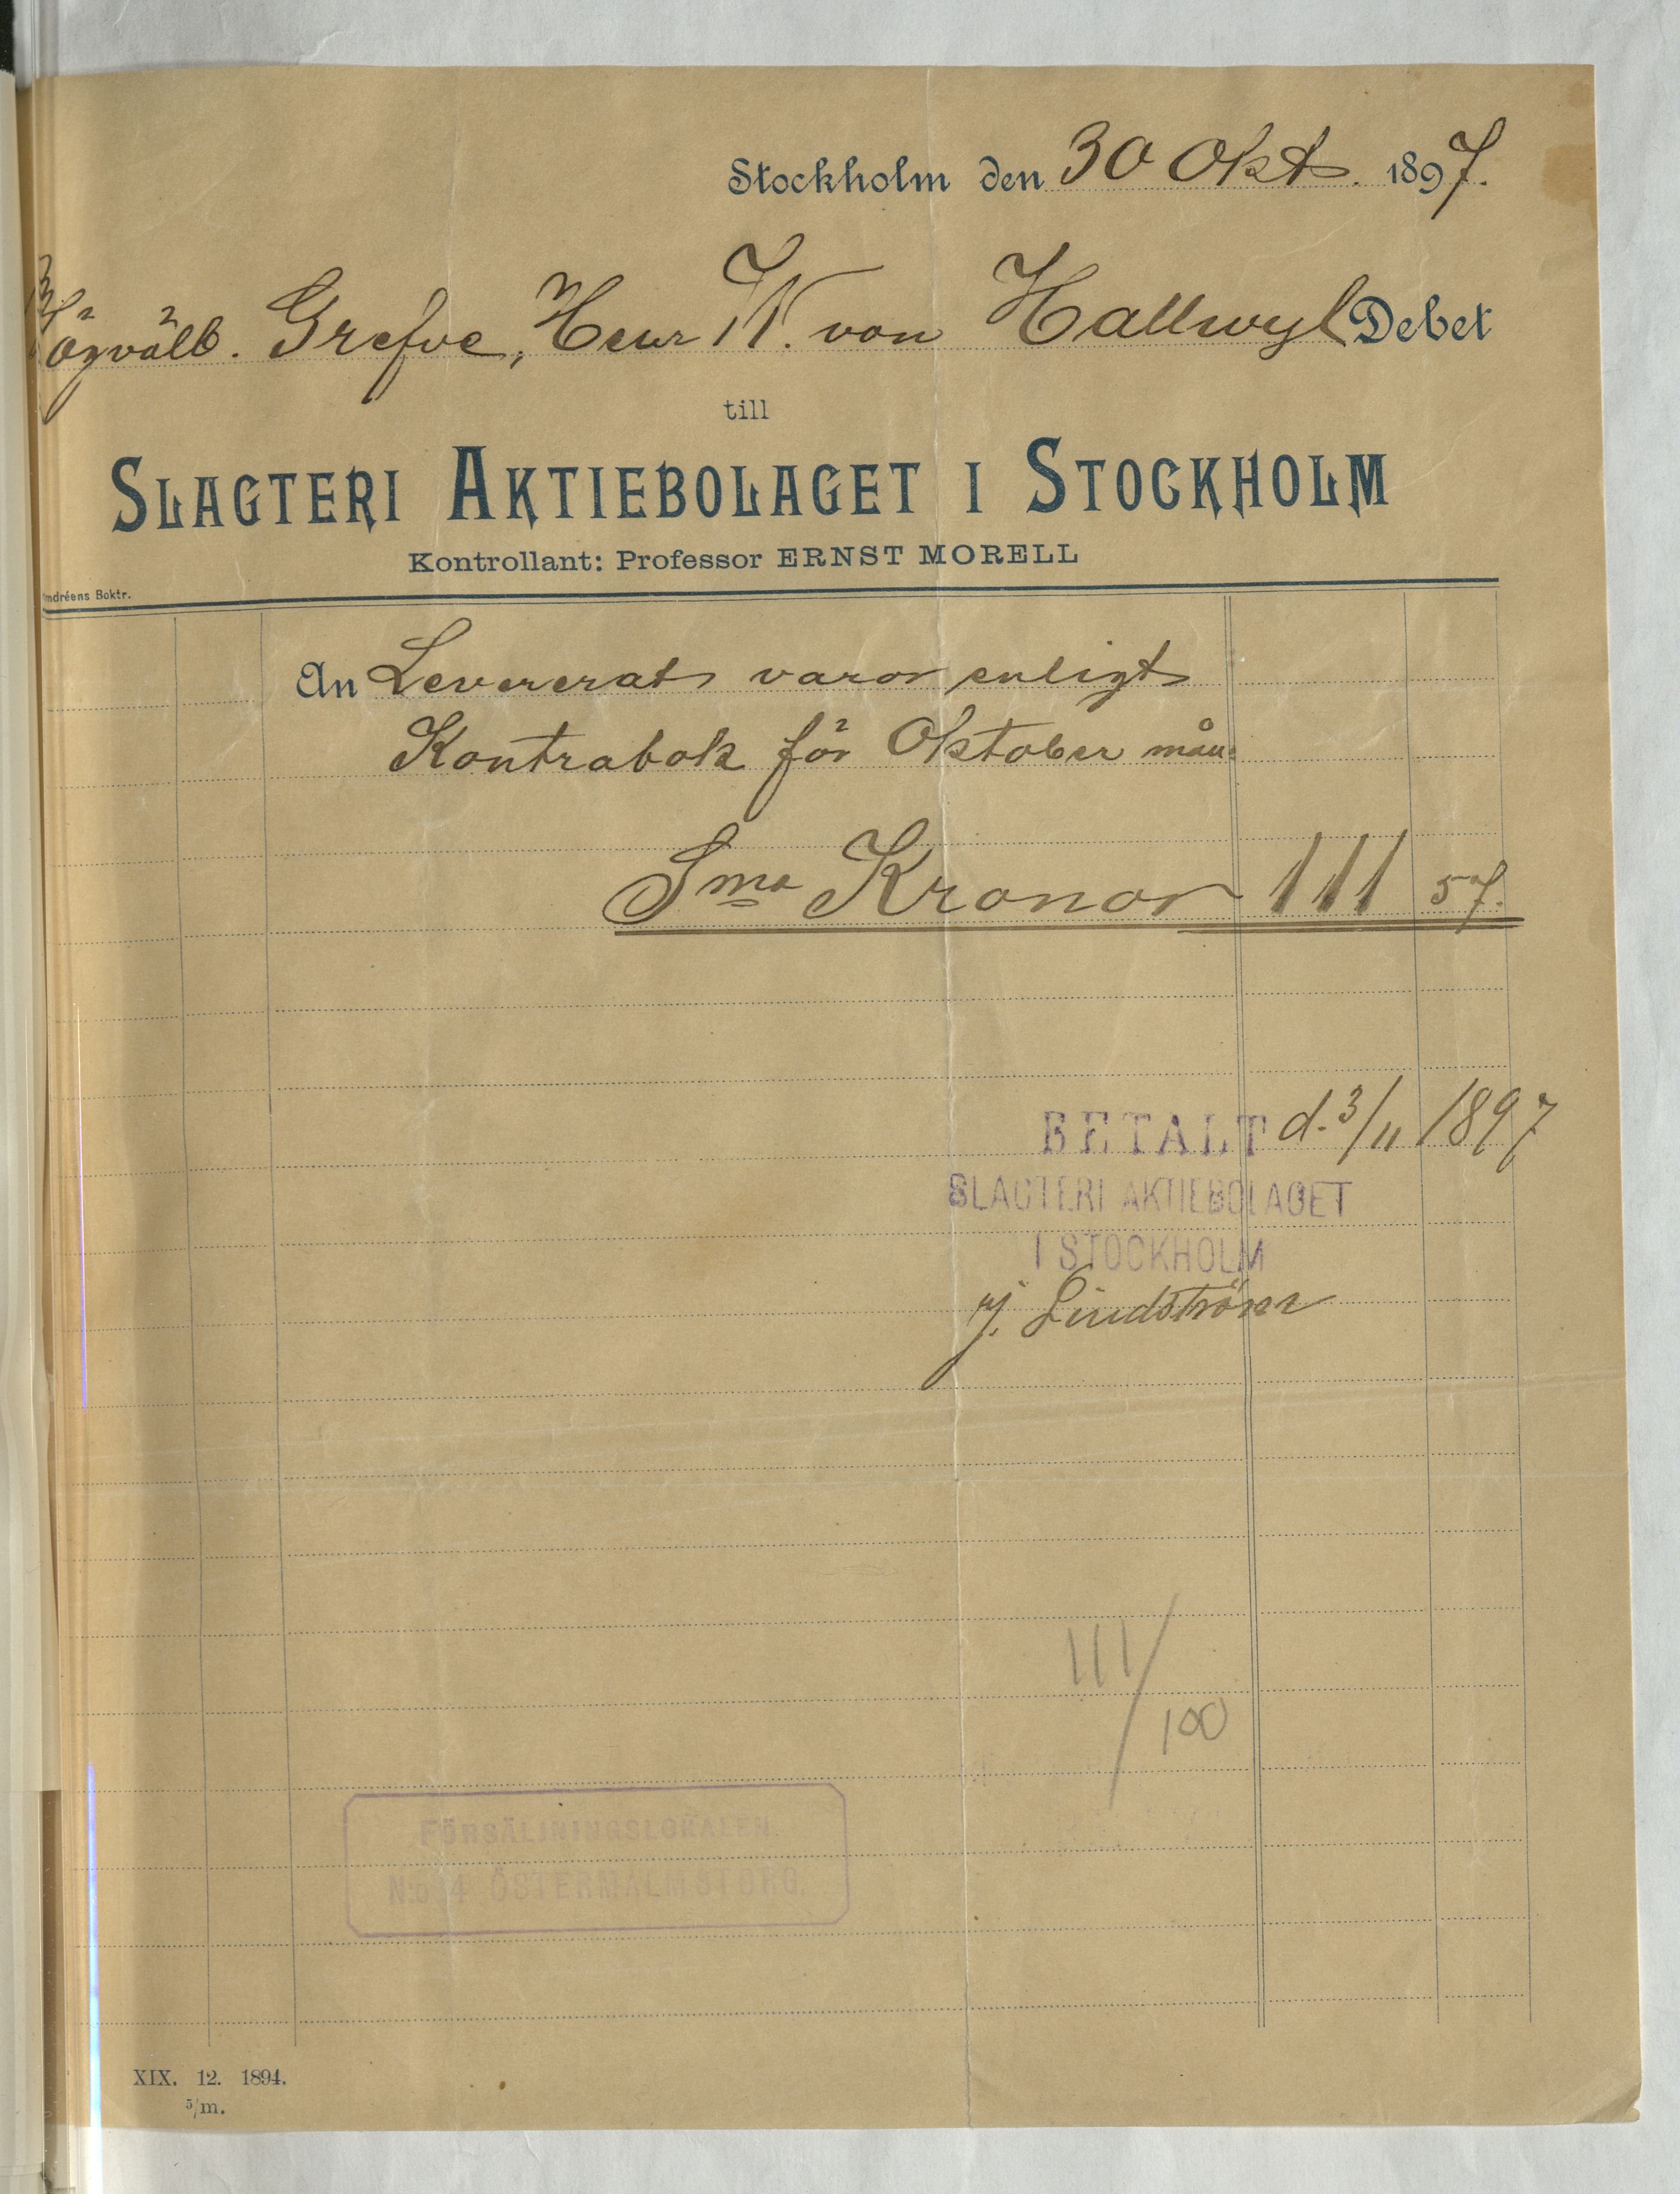 Stockholm den 30 Okt. 1897.
Högvälb. Grefve, Herr W. von Hallwyl Debet
till
SLAGTERI AKTIEBOLAGET I STOCKHOLM
Kontrollant: Professor ERNST MORELL
ndréens Boktr.
An Levererats varor enligt
Kontrabok för Oktober mån:
Sma Kronor 111 57.
BETALT d. 3/11 1897
SLAGTERI AKTIEBOLAGET
I STOCKHOLM
Lindström
111/100
FÖRSÄLJNINGSLOKALEN
No 4 ÖSTERMALMSTORG.
XIX. 12. 1894.
5/m.